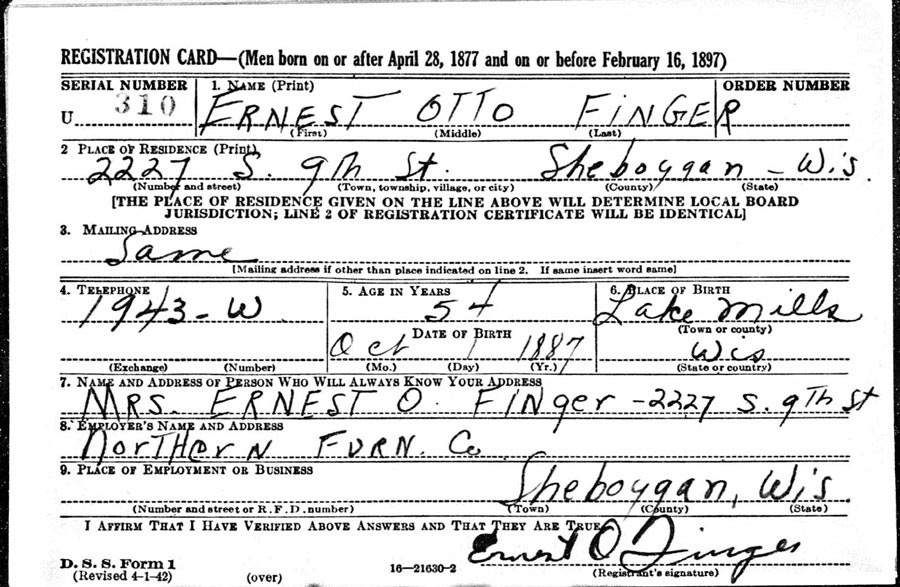 REGISTRATION CARD—(Men born on or after April 28, 1877 and on or before February 16, 1897)
SERIAL NUMBER 1. NAME (Print) ORDER NUMBER
U 310 ERNEST OTTO FINGER
(First) (Middle) (Last)
2 PLACE OF RESIDENCE (Print)
2227 S. 9Th St. Sheboygan - Wis.
(Number and street) (Town, township, village, or city) (County) (State)
[THE PLACE OF RESIDENCE GIVEN ON THE LINE ABOVE WILL DETERMINE LOCAL BOARD
JURISDICTION; LINE 2 OF REGISTRATION CERTIFICATE WILL BE IDENTICAL]
3. MAILING ADDRESS
Same
[Mailing address if other than place indicated on line 2. If same insert word same]
4. TELEPHONE 5. AGE IN YEARS 6. PLACE OF BIRTH
1943-W 54 Lake Mills
DATE OF BIRTH (Town or county)
Oct 1 1887 Wis
(Exchange) (Number) (Mo.) (Day) (Yr.) (State or country)
7. NAME AND ADDRESS OF PERSON WHO WILL ALWAYS KNOW YOUR ADDRESS
MRS. ERNEST O. FINger -2227 S. 9Th St
8. EMPLOYER'S NAME AND ADDRESS
NorTHerN FURN. Co
9. PLACE OF EMPLOYMENT OR BUSINESS
Sheboygan, Wis.
(Number and street or R. F. D. number) (Town) (County) (State)
I AFFIRM THAT I HAVE VERIFIED ABOVE ANSWERS AND THAT THEY ARE TRUE.
Ernest O Finger
D. S. S. Form 1
(Revised 4-1-42) (over) 16—21630-2 (Registrant's signature)